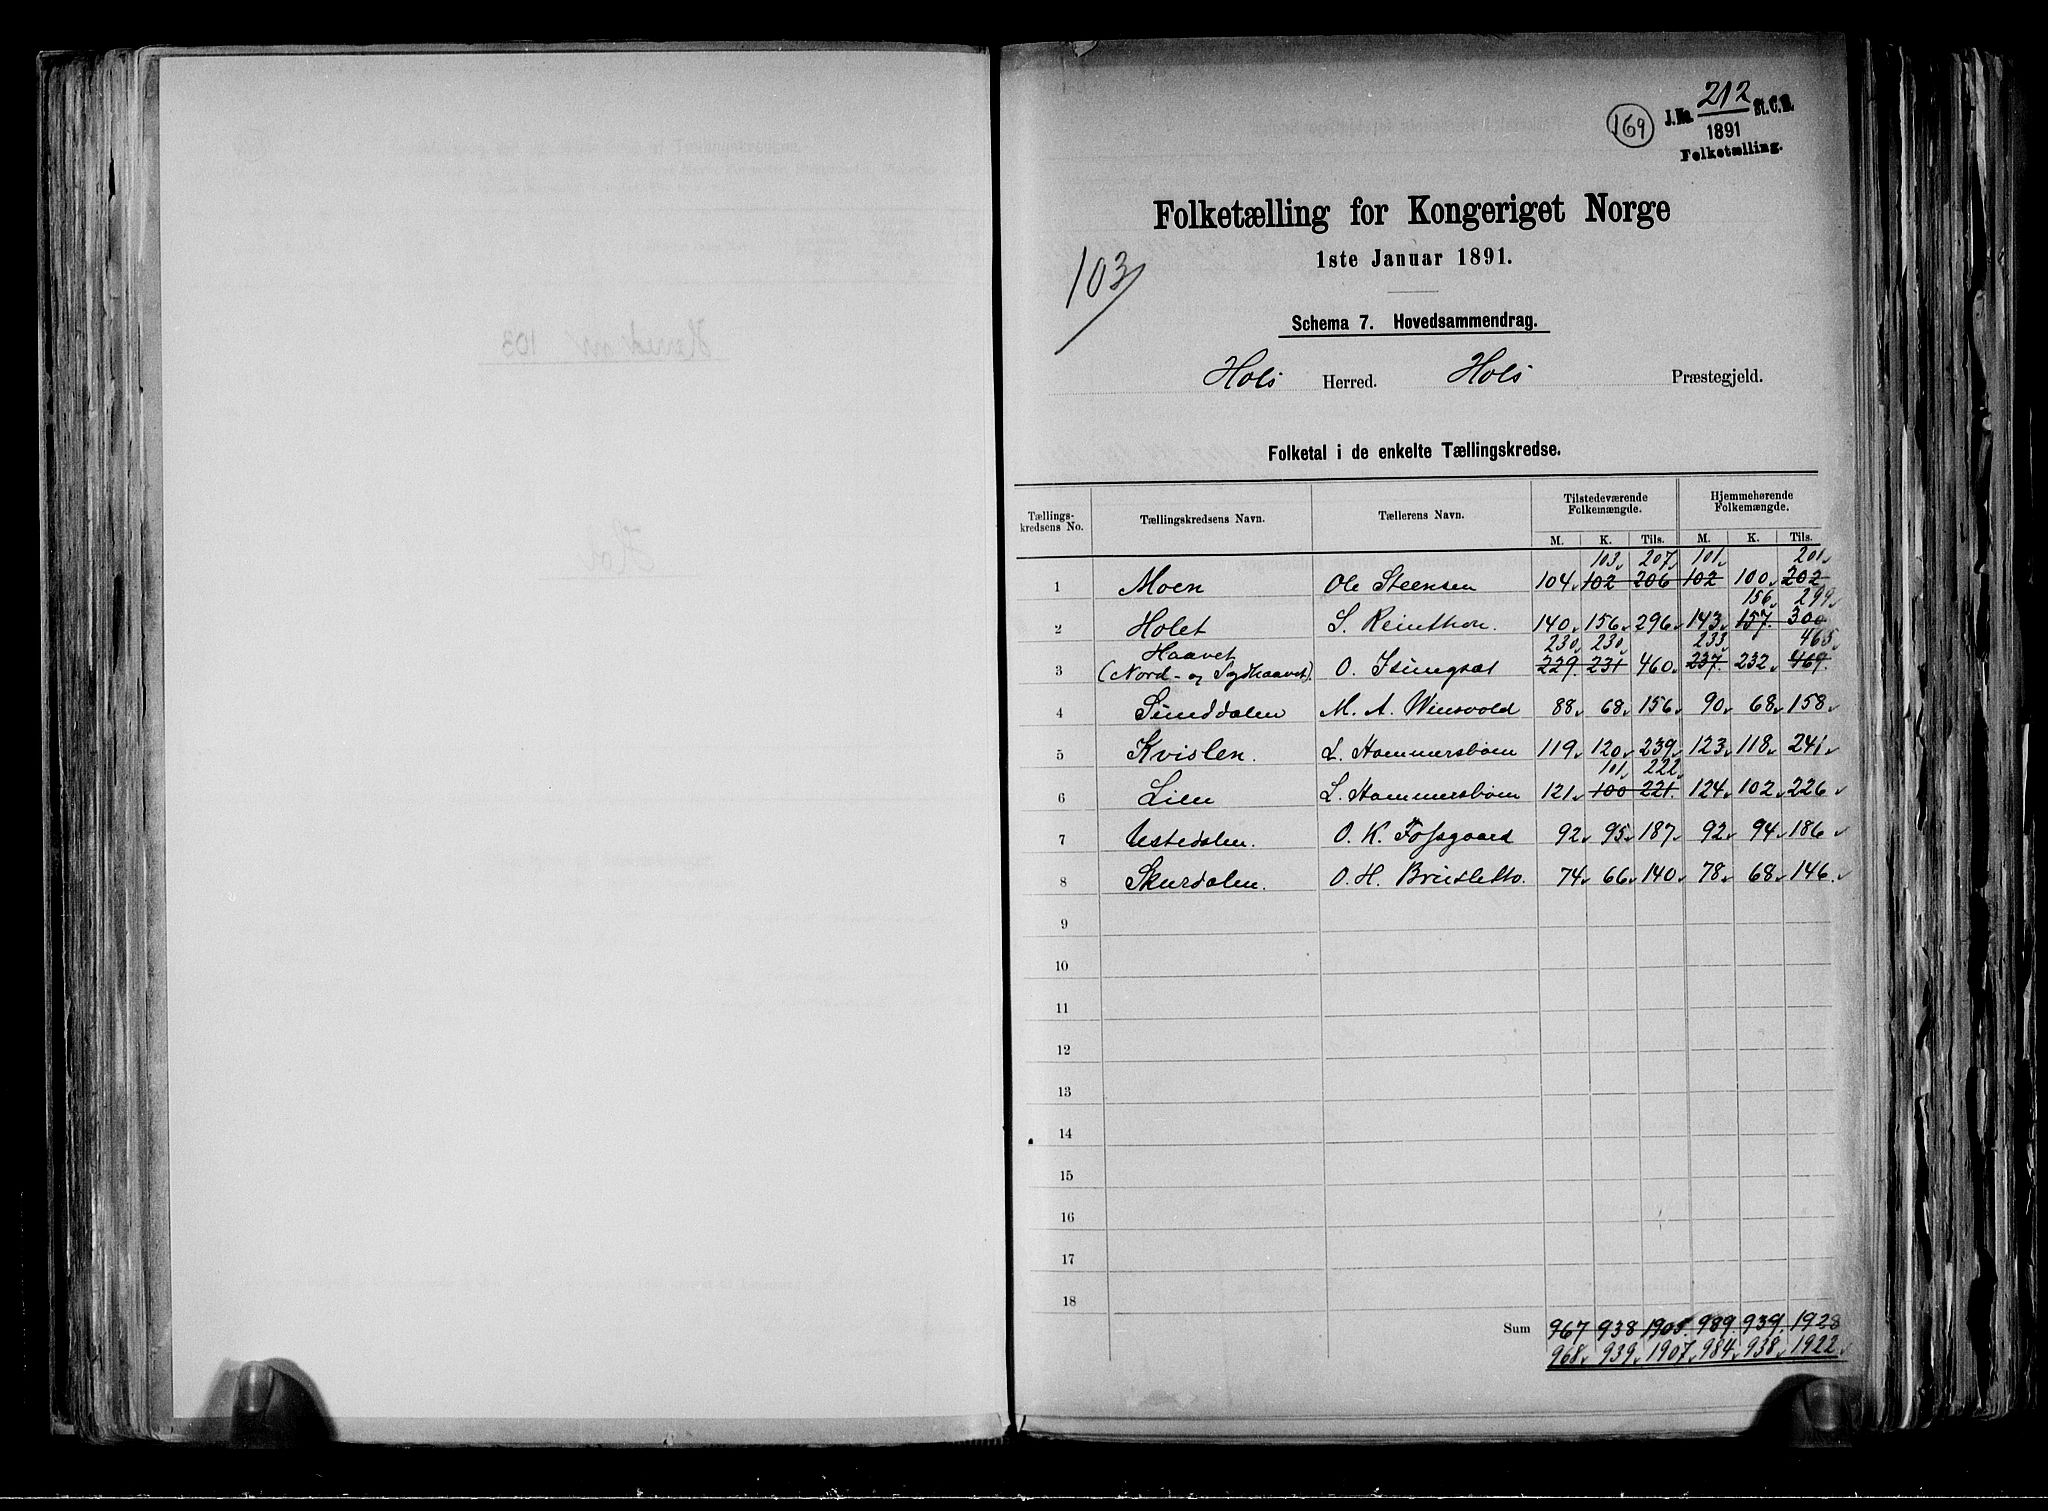 169
J. No. 212 St. C. B.
1891
Folketælling.
Folketælling for Kongeriget Norge
1ste Januar 1891.
103
Schema 7. Hovedsammendrag.
Hols Herred. Hols Præstegjeld.
Folketal i de enkelte Tællingskredse.
Tællings-kredsens No. Tællingskredsens Navn. Tællerens Navn. Tilstedeværende Folkemængde. Hjemmehørende Folkemængde.
M. K. Tils. M. K. Tils.
103 207 101 201
1 Moen Ole Steensen 104 102 206 102 100 202
156 299
2 Holet S. Reinthon. 140 156 296 143 157 300
Haavet 230 230 233 465
3 (Nord- og Sydhaavet). O. 229 231 460 237 232 469
4 Sunddalen M. A. Winsvold 88 68 156 90 68 158
5 Kvislen. L. Hammersbøen 119 120 239 123 118 241
101 222
6 Lien L. Hammersbøen 121 100 221 124 102 226
7 Ustedalen. O. K. Fossgaard 92 95 187 92 94 186
8 Skurdalen. O. H. Brusletto. 74 66 140 78 68 146
9
10
11
12
13
14
15
16
17
18
Sum 967 938 1905 989 939 1928
968 939 1907 984 938 1922
Herred nr 103
Hol